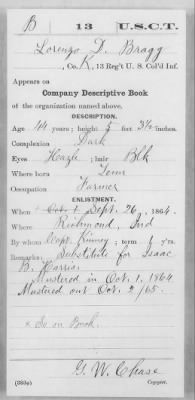 B 13 U.S.C.T.
Lorenzo D. Bragg
, Co. K, 13 Reg't U. S. Col'd Inf.
Appears on
Company Descriptive Book
of the organization named above.
DESCRIPTION.
Age 44 years; height 5 feet 3½ inches.
Complexion Dark
Eyes Hazle; hair Blk
Where born Tenn
Occupation Farmer
ENLISTMENT.
When * Oct. 1 Sept. 26, 1864.
Where Richmond, Ind
By whom Capt. Kinney; term 1 y'rs.
Remarks: Substitute for Isaac
B. Harris.
Mustered in Oct. 1, 1864
Mustered out Oct. 2/65.
* So on Book.
G. W. Chase
(383g) Copyist.